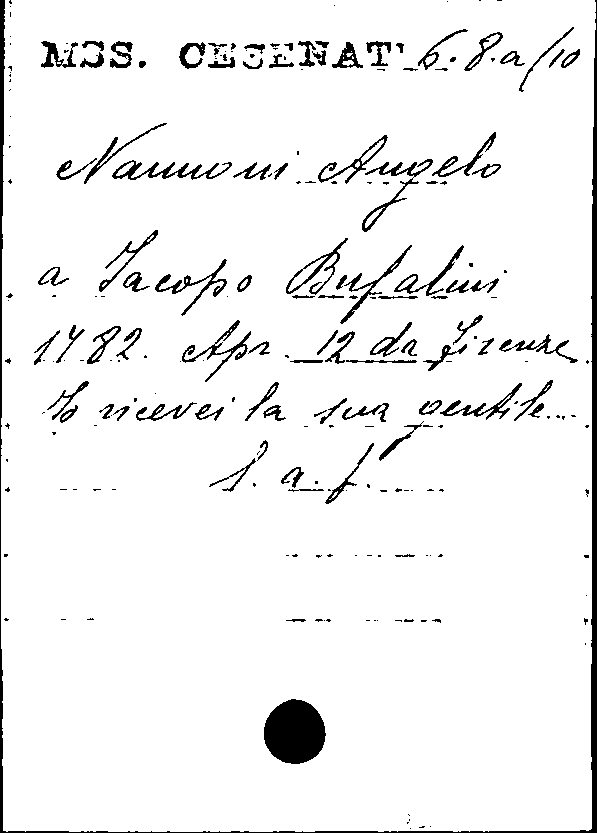 MSS. CESENAT' 6.8.a/10
Nannoni Angelo
a Jacopo Bufalini
1782. Apr. 12 da Firenze
Io ricevei la sua gentile...
l. a. f.